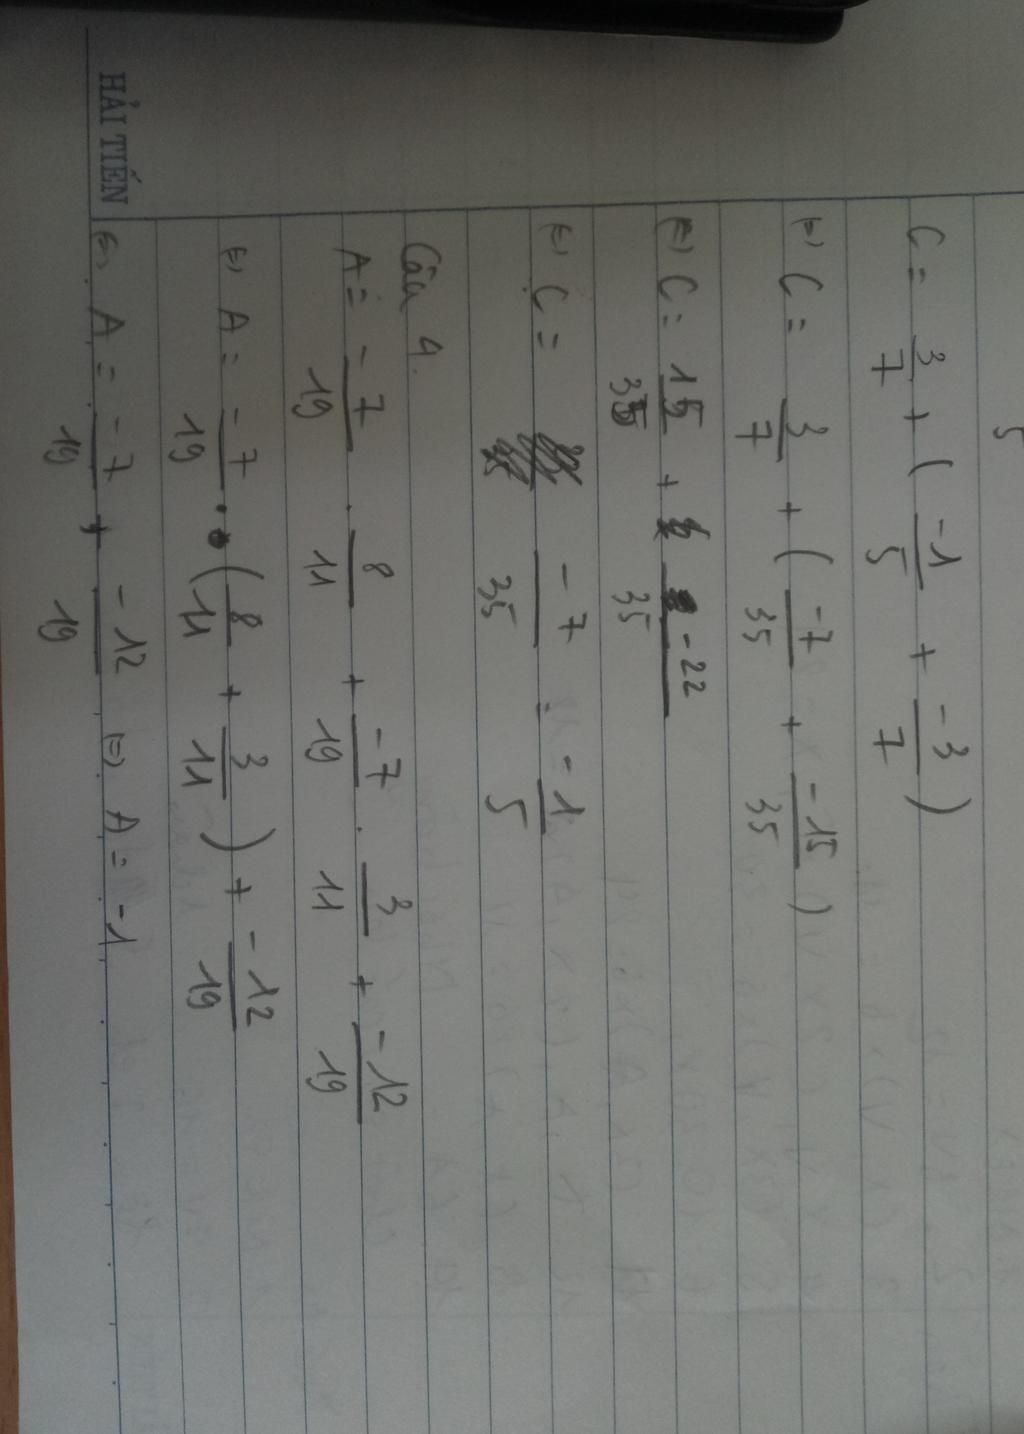 5
C = 3/7 + ( -1/5 + -3/7 )
(=) C = 3/7 + ( -7/35 + -15/35 )
(=) C = 15/35 + -22/35
(=) C = -7/35 = -1/5
Câu 4.
A = -7/19 . 8/11 + -7/19 . 3/11 + -12/19
(=) A = -7/19 . ( 8/11 + 3/11 ) + -12/19
(=) A = -7/19 + -12/19 (=) A = -1
HẢI TIẾN